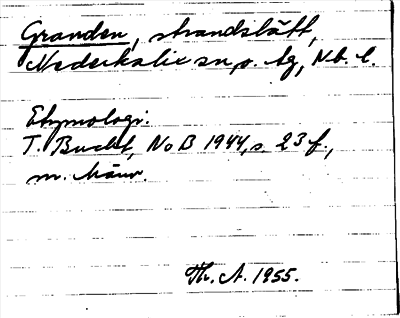 Granden, strandslätt,
Nederkalix sn, o. tg, Nb. l.
Etymologi.
T. Bucht, NoB 1944, s. 23 f.,
m. hänv.
Th. A. 1955.